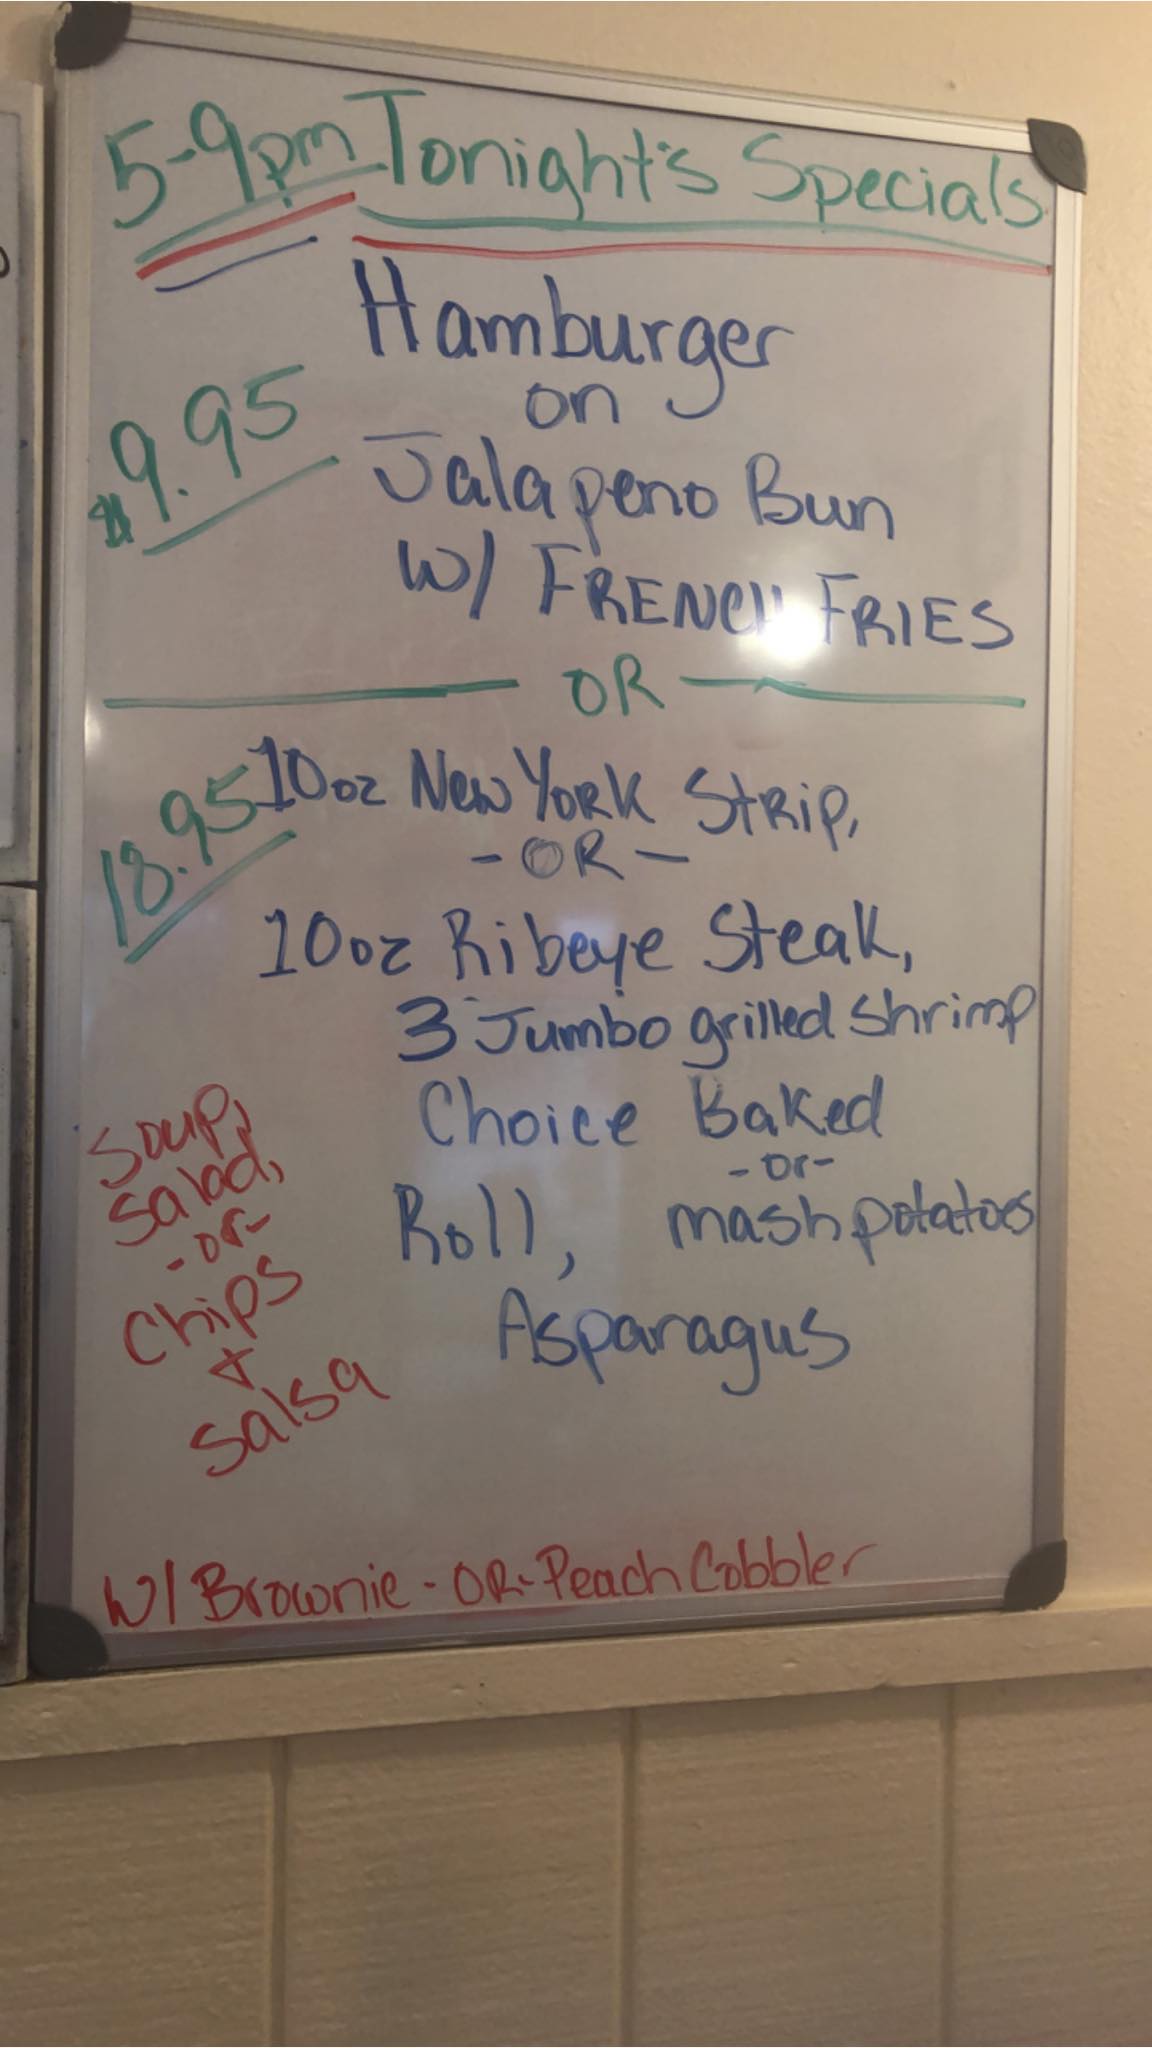 5-9pm Tonight's Specials
Hamburger
on
$9.95
Jalapeno Bun
W/ FRENCH FRIES
OR
18.95
10oz New York Strip,
- OR -
10oz Ribeye Steak,
3 Jumbo grilled shrimp
Choice Baked
-or-
Roll, mash potatoes
Asparagus
Soup,
salad,
-or-
Chips
+
salsa
W/ Brownie - OR - Peach Cobbler